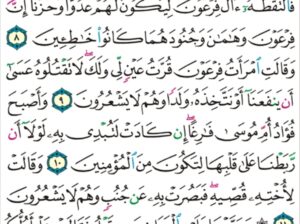 فَالْتَقَطَهُۥٓ ءَالُ فِرْعَوْنَ لِيَكُونَ لَهُمْ عَدُوًّا وَحَزَنًا إِنَّ
فِرْعَوْنَ وَهَٰمَٰنَ وَجُنُودَهُمَا كَانُوا۟ خَٰطِـِٔينَ
٨ وَقَالَتِ ٱمْرَأَتُ فِرْعَوْنَ قُرَّتُ عَيْنٍ لِّى وَلَكَ لَا تَقْتُلُوهُ عَسَىٰٓ
أَن يَنفَعَنَآ أَوْ نَتَّخِذَهُۥ وَلَدًا وَهُمْ لَا يَشْعُرُونَ ٩ وَأَصْبَحَ
فُؤَادُ أُمِّ مُوسَىٰ فَٰرِغًا إِن كَادَتْ لَتُبْدِى بِهِۦ لَوْلَآ أَن
رَّبَطْنَا عَلَىٰ قَلْبِهَا لِتَكُونَ مِنَ ٱلْمُؤْمِنِينَ ١٠ وَقَالَتْ
لِأُخْتِهِۦ قُصِّيهِ فَبَصُرَتْ بِهِۦ عَن جُنُبٍ وَهُمْ لَا يَشْعُرُونَ